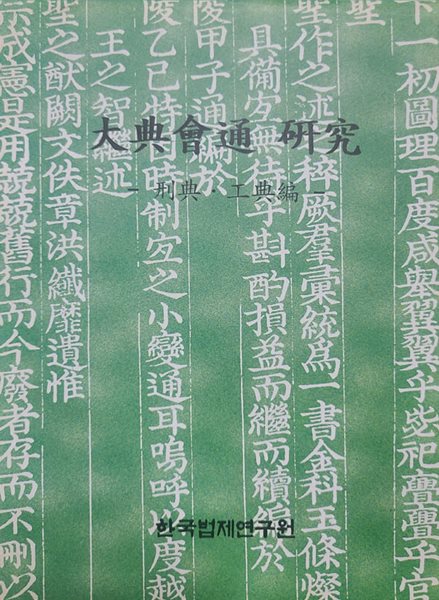 大典會通 硏究
- 刑典·工典編 -
下一初圖理百度咸與翼翼乎毖祀亹亹乎官
聖
聖作之述稡厥羣彙統爲一書金科玉條燦
具備宜無待乎斟酌損益而繼而續編於
陵甲子通編於
陵乙巳特時制宜之小變通耳嗚呼以度越
王之智繼述
聖之猷闕文佚章洪纖靡遺惟
宗成憲是用兢兢舊行而今廢者存而不刪以
한국법제연구원